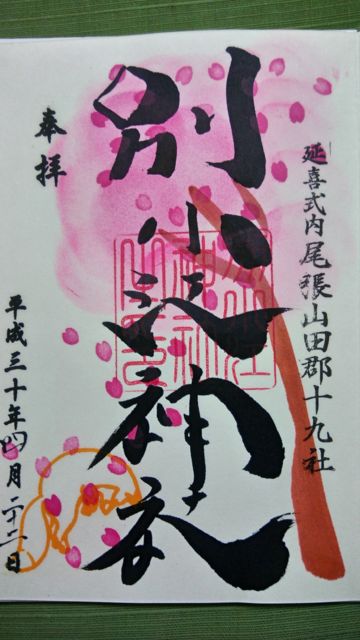 延喜式内尾張山田郡十九社
別小江神社
奉拝
平成三十年四月二十二日